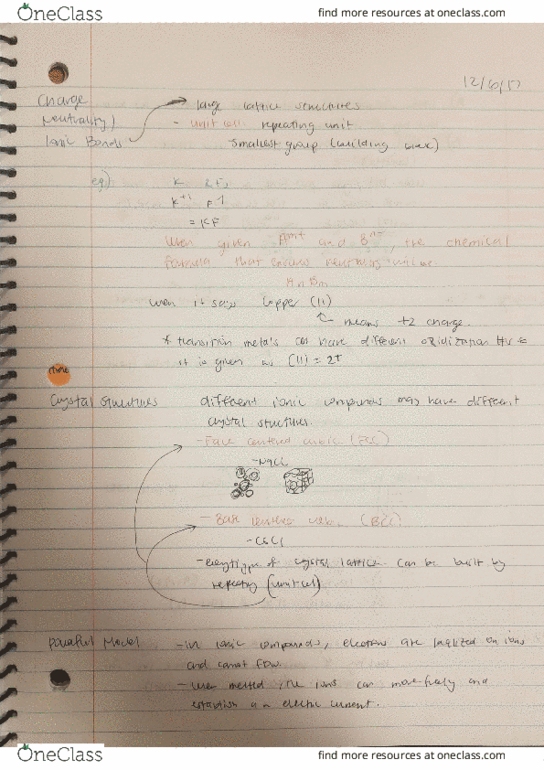 OneClass find more resources at oneclass.com
12/6/17
Charge large lattice structures
Neutrality / - unit cell repeating unit
Ionic Bonds smallest group (building
eg) K
K+1 F-1
= KF
when given Am+ and Bn-, the chemical
formula that ensures neutrality
An Bm
when it says Copper (II)
means +2 charge.
* transition metals can have different oxidization
it is given as (II) = 2+
Crystal Structures different ionic compounds may have different
crystal structures.
- Face centered cubic
- NaCl
(BCC)
- CsCl
- every type of crystal lattice can be built by
repeating (unit cell)
Model - in ionic compounds, electrons are localized on ions
and cannot flow.
- when melted, the ions can move freely and
establish an electric current.
OneClass find more resources at oneclass.com